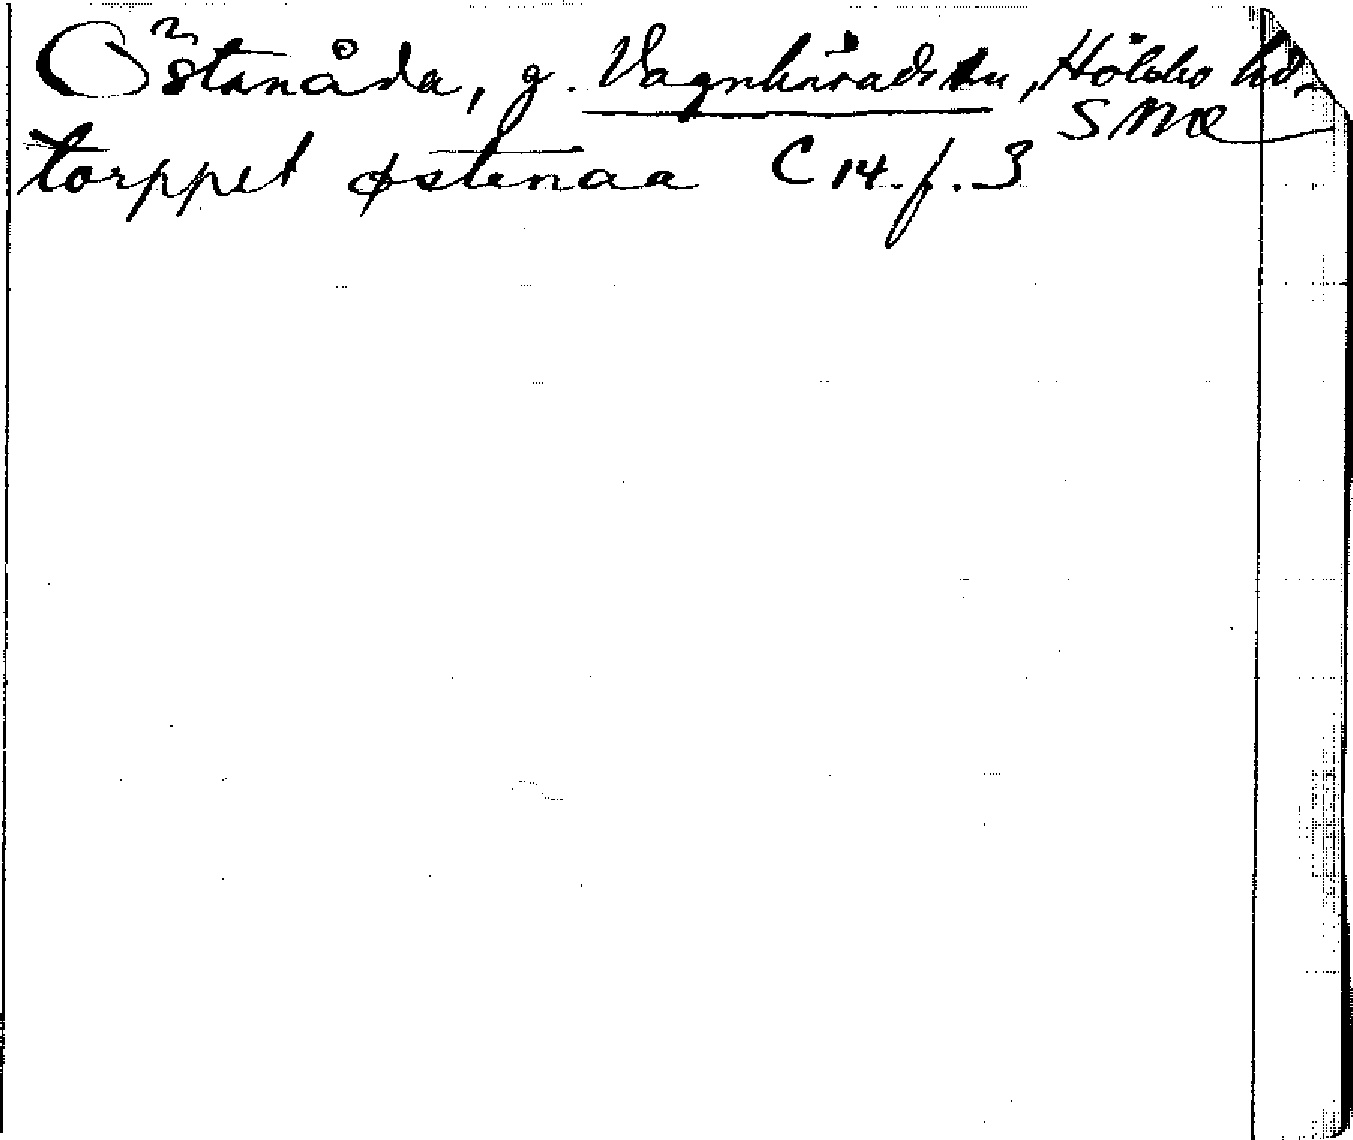 Östanåda, g. Vagnhärads sn, Hölebo hd,
SML
torppet østenaa C 14. f. 3